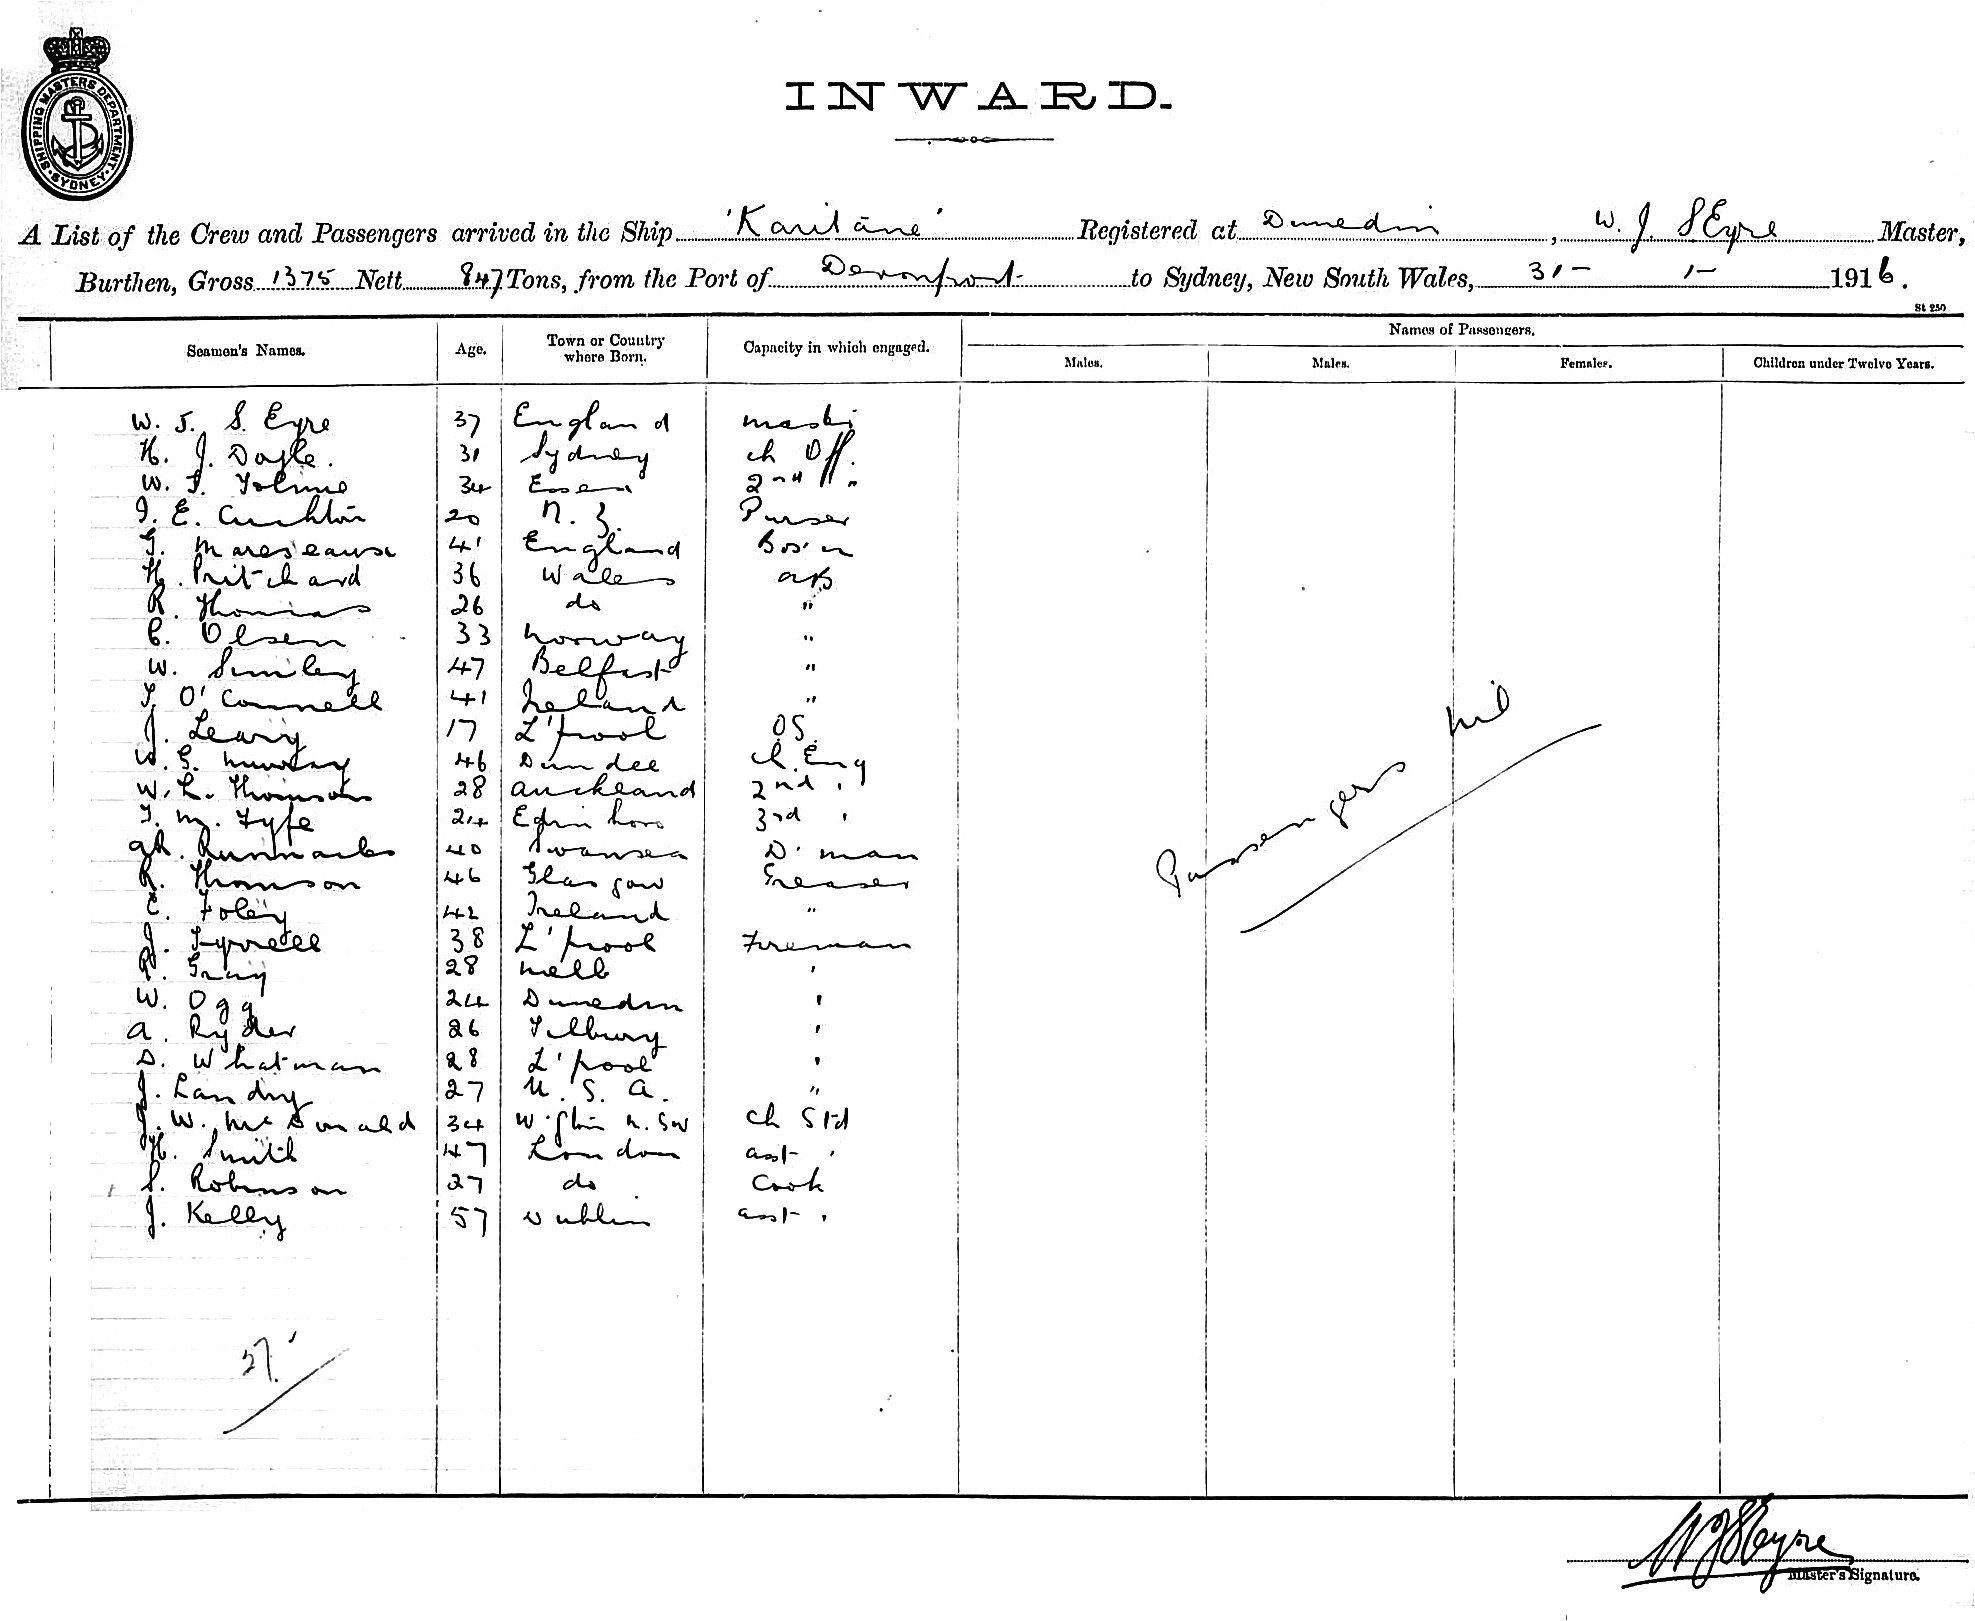 SHIPPING MASTERS DEPARTMENT
SYDNEY
INWARD.
A List of the Crew and Passengers arrived in the Ship 'Karitane' Registered at Dunedin, W. J. S Eyre Master,
Burthen, Gross 1375 Nett 847 Tons, from the Port of Devonport to Sydney, New South Wales, 31- 1- 1916.
St 250
Seamen's Names. Age. Town or Country where Born. Capacity in which engaged. Names of Passengers.
Males. Males. Females. Children under Twelve Years.
W. J. S. Eyre 37 England master
H. J. Doyle. 31 Sydney ch Off.
W. F. 34 Essex 2nd "
E. 20 N. Z. Purser
G. 41 England Bos'n
H. Pritchard 36 Wales AB
R. Thomas 26 do "
C. Olsen 33 Norway "
W. Smiley 47 Belfast "
T. O'Connell 41 Ireland "
J. Leary 17 L'pool OS
G. Murray 46 Dundee Ch. Eng
W. L. Thomson 28 Auckland 2nd "
T. M. Fyfe 24 3rd "
40 Swansea D'man
R. Thomson 46 Glasgow Greaser
E. Foley 42 Ireland "
J. Tyrrell 38 L'pool Fireman
R. Gray 28 Melb "
W. Ogg 24 Dunedin "
A. Ryder 26 Tilbury "
D. Whatman 28 L'pool "
J. Landry 27 U. S. A. "
J. W. McDonald 34 N.SW Ch Std
H. Smith 47 London asst "
S. Robinson 27 do Cook
J. Kelly 57 Dublin asst "
Passengers nil
27
WJSEyre
Master's Signature.